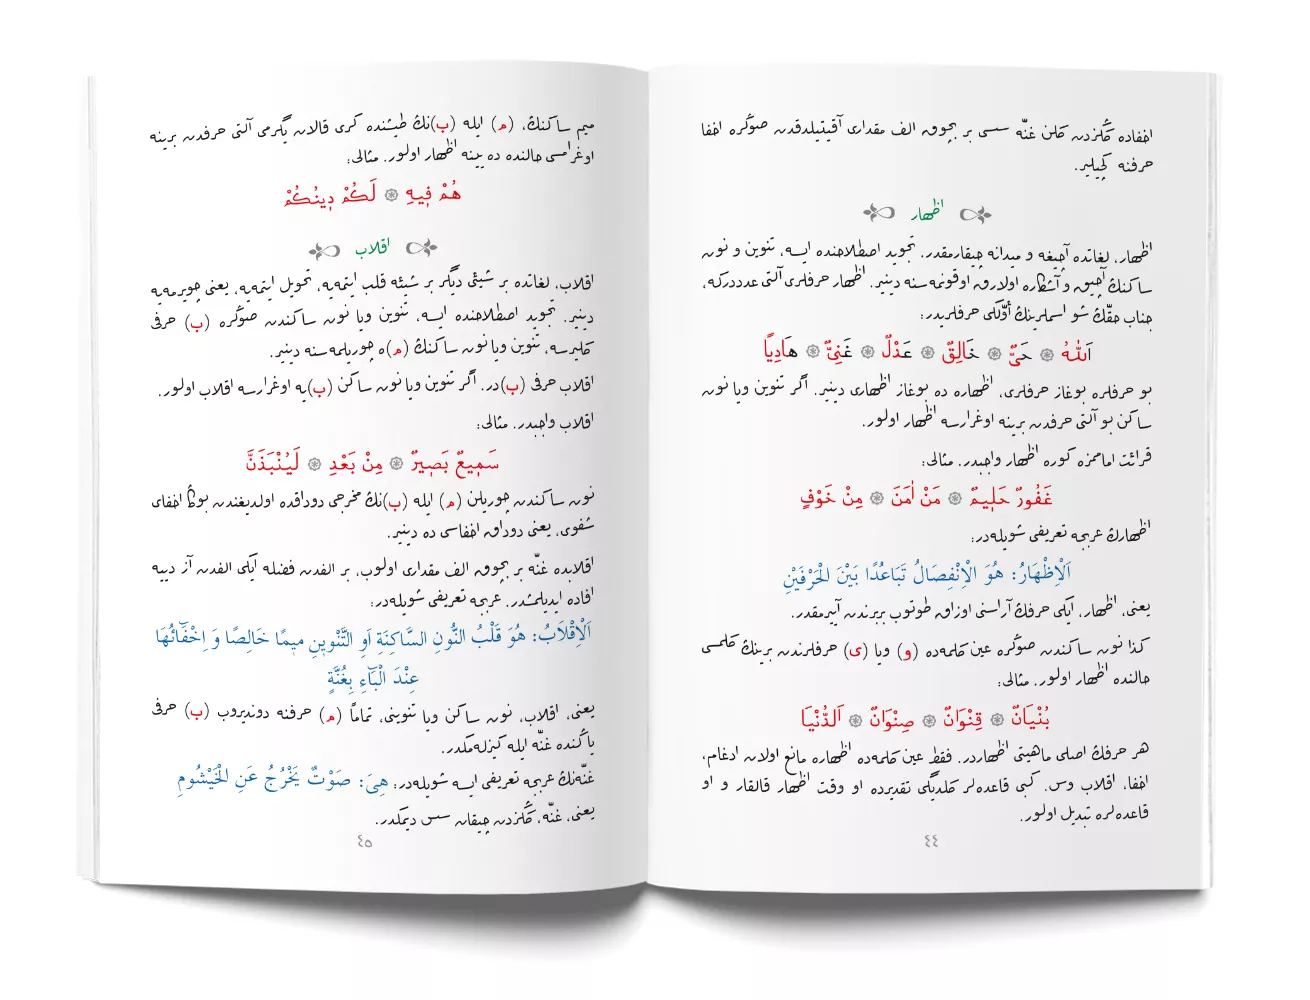 اخفاده گڭزدن گلن غنّه سسی بر بچوق الف مقداری آقیتیلدقدن صوڭره اخفا
حرفنه گچیلیر.
اظهار
اظهار، لغاتده آچیغه و میدانه چیقارمقدر. تجوید اصطلاحنده ایسه، تنوین و نون
ساكنڭ آچیق و آشكاره اولارق اوقونمه‌سنه دینیر. اظهار حرفلری آلتی عدددركه،
جناب حقّڭ شو اسملرینڭ أوّلكی حرفلریدر:
اَللّٰهُ ۞ حَیٌّ ۞ خَالِقٌ ۞ عَدْلٌ ۞ غَنِیٌّ ۞ هَادِیًا
بو حرفلره بوغاز حرفلری، اظهاره ده بوغاز اظهاری دینیر. اگر تنوین ویا نون
ساكن بو آلتی حرفدن برینه اوغرارسه اظهار اولور.
قرائت اماممزه كوره اظهار واجبدر. مثالی:
غَفُورٌ حَلِیمٌ ۞ مَنْ اٰمَنَ ۞ مِنْ خَوْفٍ
اظهارڭ عربجه تعریفی شویله‌در:
اَلْاِظْهَارُ: هُوَ الْاِنْفِصَالُ تَبَاعُدًا بَیْنَ الْحَرْفَیْنِ
یعنی، اظهار، ایكی حرفڭ آراسنی اوزاق طوتوب بربرندن آییرمقدر.
كذا نون ساكندن صوڭره عین كلمه‌ده (و) ویا (ی) حرفلرندن برینڭ گلمسی
حالنده اظهار اولور. مثالی:
بُنْیَانٌ ۞ قِنْوَانٌ ۞ صِنْوَانٌ ۞ اَلدُّنْیَا
هر حرفڭ اصلی ماهیتی اظهاردر. فقط عین كلمه‌ده اظهاره مانع اولان ادغام،
اخفا، اقلاب وس. كبی قاعده‌لر گلدیگی تقدیرده او وقت اظهار قالقار و او
قاعده‌لره تبدیل اولور.
٤٤
میم ساكنڭ، (م) ایله (ب)نڭ طیشنده كری قالان یگرمی آلتی حرفدن برینه
اوغرامسی حالنده ده یینه اظهار اولور. مثالی:
هُمْ فِیهِ ۞ لَكُمْ دِینُكُمْ
اقلاب
اقلاب، لغاتده بر شیئی دیگر بر شیئه قلب ایتمه‌یه، تحویل ایتمه‌یه، یعنی چویرمه‌یه
دینیر. تجوید اصطلاحنده ایسه، تنوین ویا نون ساكندن صوڭره (ب) حرفی
گلیرسه، تنوین ویا نون ساكنڭ (م)ه چوریلمه‌سنه دینیر.
اقلاب حرفی (ب)در. اگر تنوین ویا نون ساكن (ب)یه اوغرارسه اقلاب اولور.
اقلاب واجبدر. مثالی:
سَمِیعٌ بَصِیرٌ ۞ مِنْ بَعْدِ ۞ لَیُنْبَذَنَّ
نون ساكندن چوریلن (م) ایله (ب)نڭ مخرجی دوداقده اولدیغندن بوڭا اخفای
شفوی، یعنی دوداق اخفاسی ده دینیر.
اقلابده غنّه بر بچوق الف مقداری اولوب، بر الفدن فضله ایكی الفدن آز دییه
افاده ایدیلمشدر. عربجه تعریفی شویله‌در:
اَلْاِقْلَابُ: هُوَ قَلْبُ النُّونِ السَّاكِنَةِ اَوِ التَّنْوِینِ مِیمًا خَالِصًا وَ اِخْفَٓائُهَا
عِنْدَ الْبَٓاءِ بِغُنَّةٍ
یعنی، اقلاب، نون ساكن ویا تنوینی، تمامًا (م) حرفنه دوندیروب (ب) حرفی
یاكنده غنّه ایله كیزله‌مكدر.
غنّه‌نڭ عربجه تعریفی ایسه شویله‌در: هِیَ: صَوْتٌ یَخْرُجُ عَنِ الْخَیْشُومِ
یعنی، غنّه، گڭزدن چیقان سس دیمكدر.
٤٥